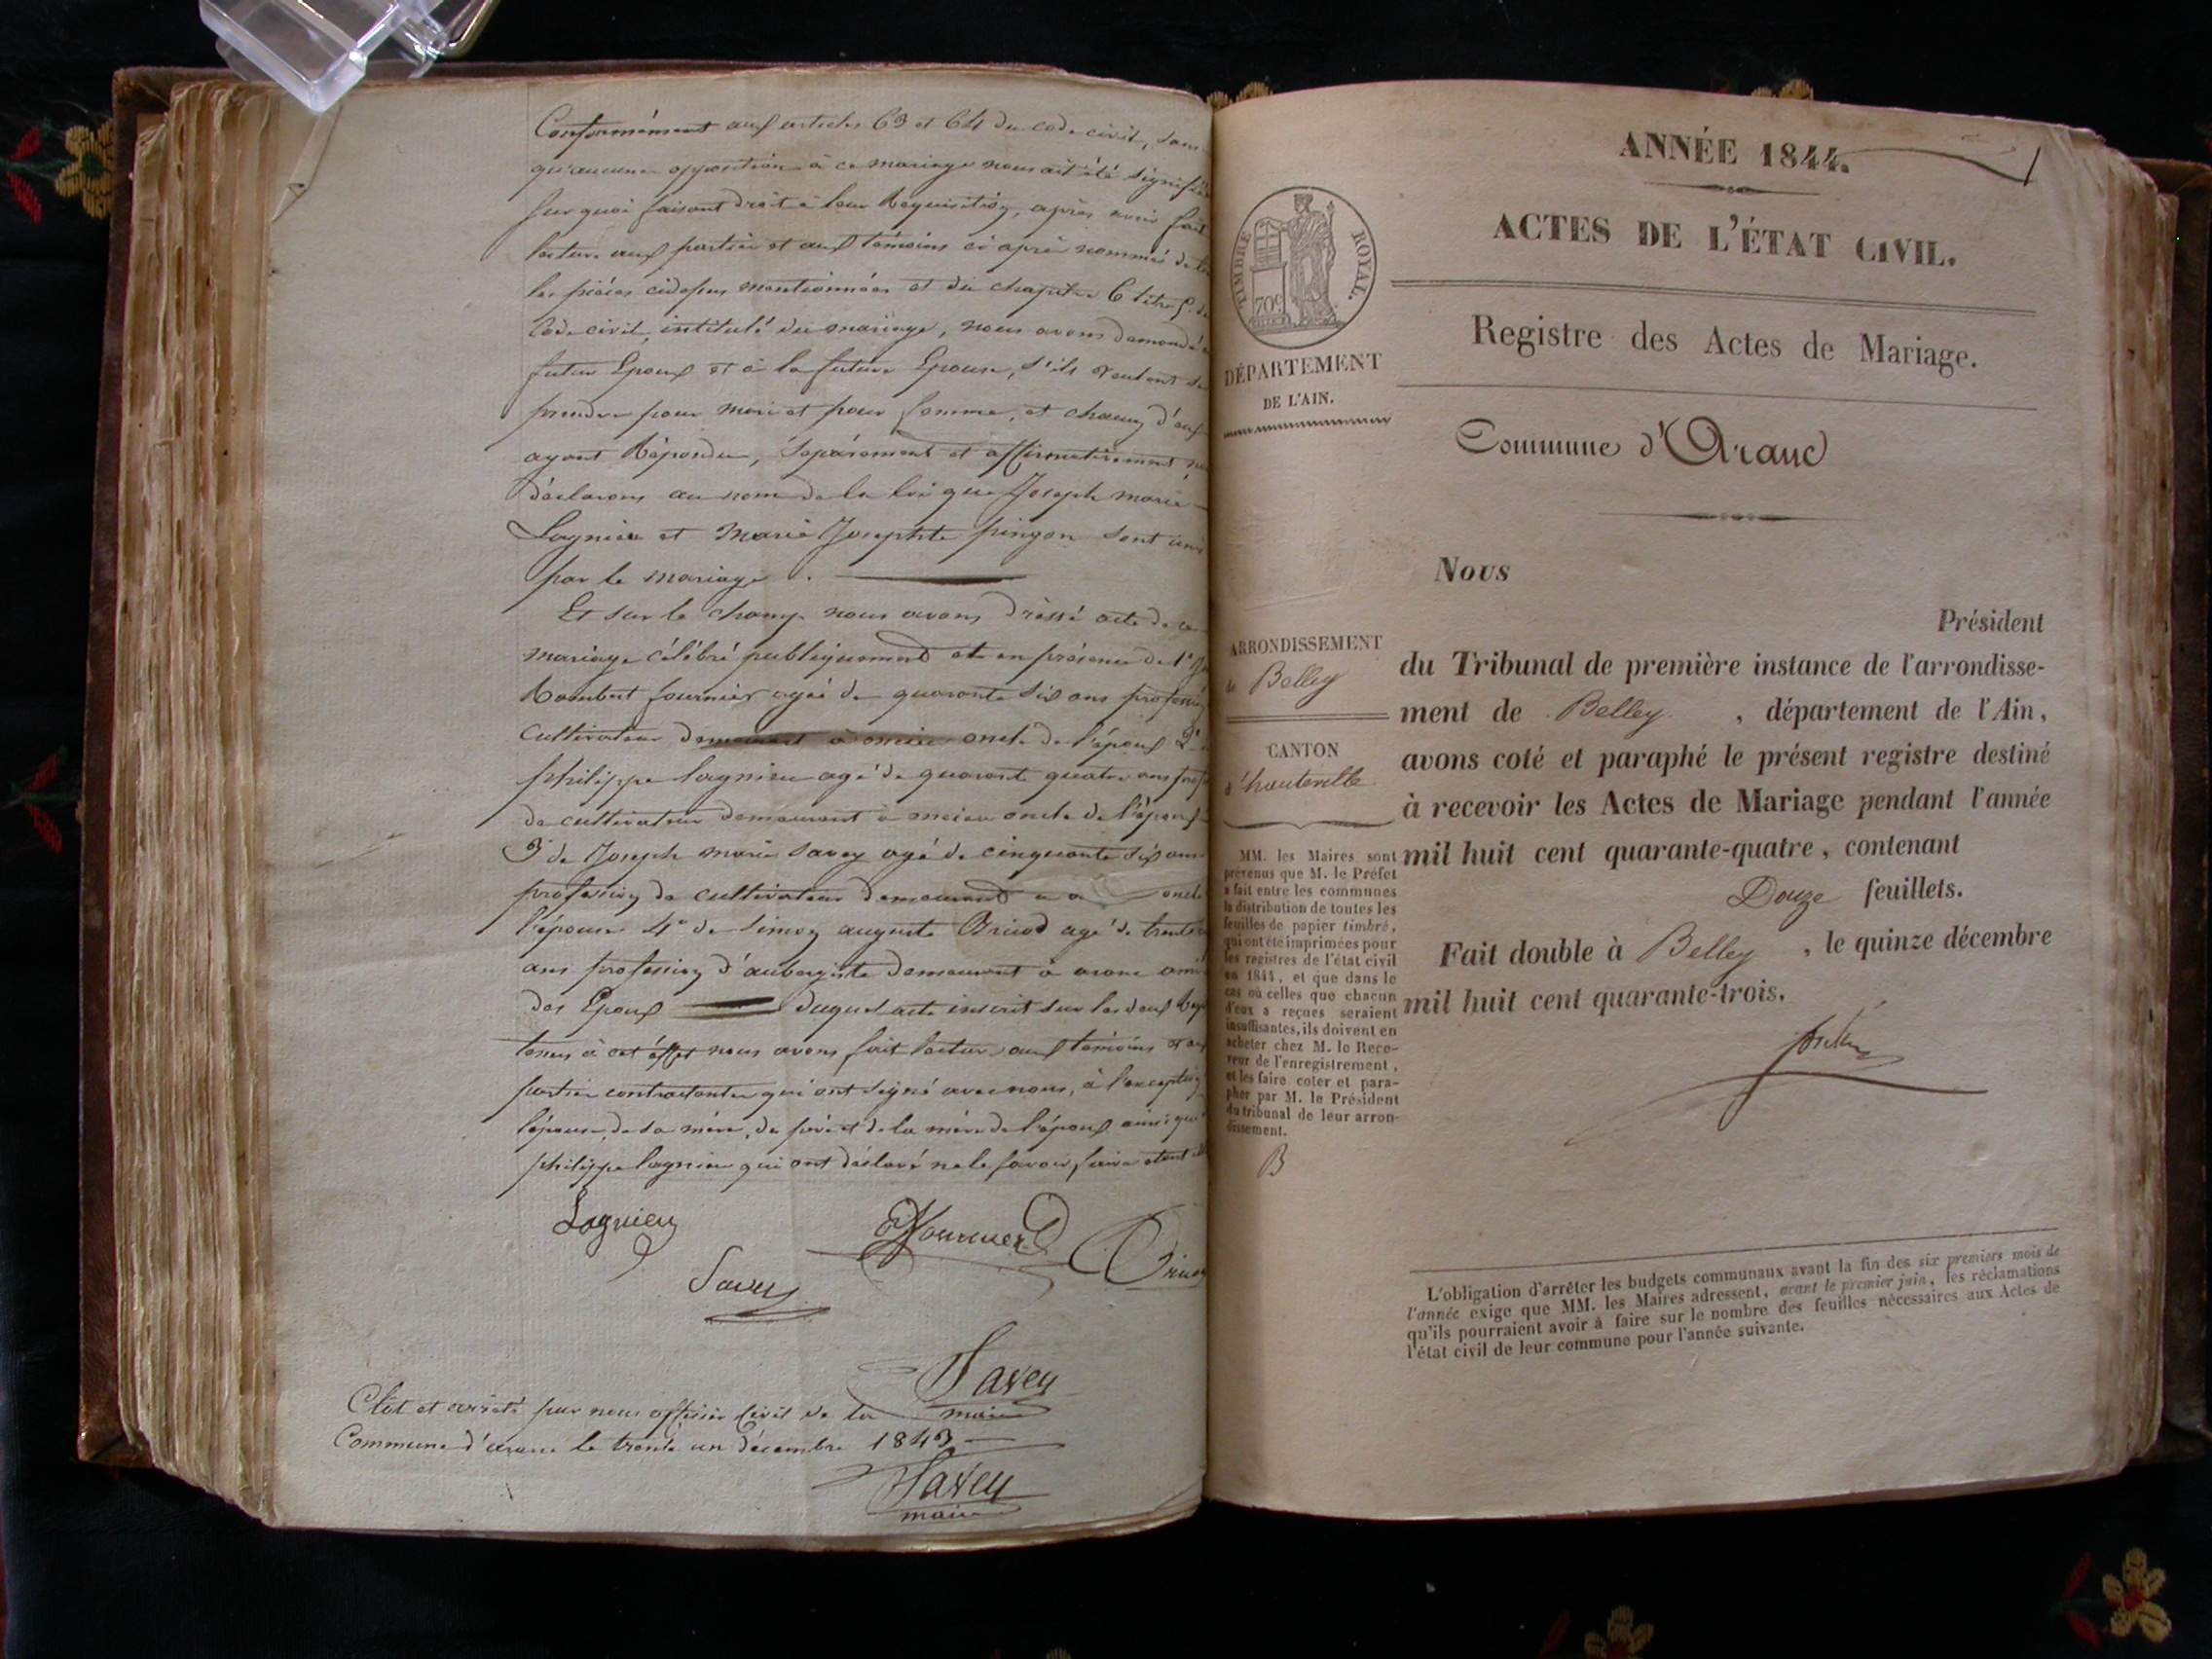 Conformément aux articles 63 et 64 du code civil, sans
qu'aucune opposition à ce mariage nous ait été signifiée
Sur quoi faisant droit à leur Requisition, après avoir fait
lecture aux parties et aux témoins ci après nommés de
les pièces cidessus mentionnées et du chapitre 6 titre 5
Code civil, intitulé du mariage, nous avons demandé
futur Epoux et à la future Epouse, s'ils veulent se
prendre pour mari et pour femme, et chacun d'eux
ayant Répondu, Séparément et affirmativement
déclarons au nom de la loi que Joseph marie
Lagnieu et Marie Josephte pingon Sont unis
par le mariage.
Et sur le champ nous avons dressé acte de ce
mariage célébré publiquement et en présence de 1°
Rambert fournier agé de quarante six ans profession
cultivateur demeurant à oncle de l'époux 2°
philippe lagnieu agé de quarante quatre ans
de cultivateur demeurant à oncle de l'époux
3° de Joseph marie Savey agé de cinquante six ans
profession de cultivateur demeurant a oncle
l'épouse 4° de Simon auguste Bricod agé de trente
ans profession d'aubergiste demeurant à aranc ami
des Epoux Duquel acte inscrit sur les deux
tenus à cet éffet nous avons fait lecture aux témoins et aux
parties contractantes qui ont signé avec nous, à l'exception
l'épouse, de sa mère, du père et de la mère de l'époux ainsi que
philippe lagnieu qui ont déclaré ne le savoir faire
Lagnieu
Fournier
Savey
Savey
maire
Clôt et arrêté par nous officier Civil de la
Commune d'aranc le trente un décembre 1843
Savey
maire
ANNÉE 1844.
1
ACTES DE L'ÉTAT CIVIL.
TIMBRE ROYAL.
70c
Registre des Actes de Mariage.
DÉPARTEMENT
DE L'AIN.
Commune d'Aranc
Nous
Président
du Tribunal de première instance de l'arrondisse-
ment de Belley, département de l'Ain,
avons coté et paraphé le présent registre destiné
à recevoir les Actes de Mariage pendant l'année
mil huit cent quarante-quatre, contenant
Douze feuillets.
Fait double à Belley, le quinze décembre
mil huit cent quarante-trois.
ARRONDISSEMENT
de Belley
CANTON
d'hauteville
MM. les Maires sont
prévenus que M. le Préfet
a fait entre les communes
la distribution de toutes les
feuilles de papier timbré,
qui ont été imprimées pour
les registres de l'état civil
en 1844, et que dans le
cas où celles que chacun
d'eux a reçues seraient
insuffisantes, ils doivent en
acheter chez M. le Rece-
veur de l'enregistrement,
et les faire coter et para-
pher par M. le Président
du tribunal de leur arron-
dissement.
B
L'obligation d'arrêter les budgets communaux avant la fin des six premiers mois de
l'année exige que MM. les Maires adressent, avant le premier juin, les réclamations
qu'ils pourraient avoir à faire sur le nombre des feuilles nécessaires aux Actes de
l'état civil de leur commune pour l'année suivante.